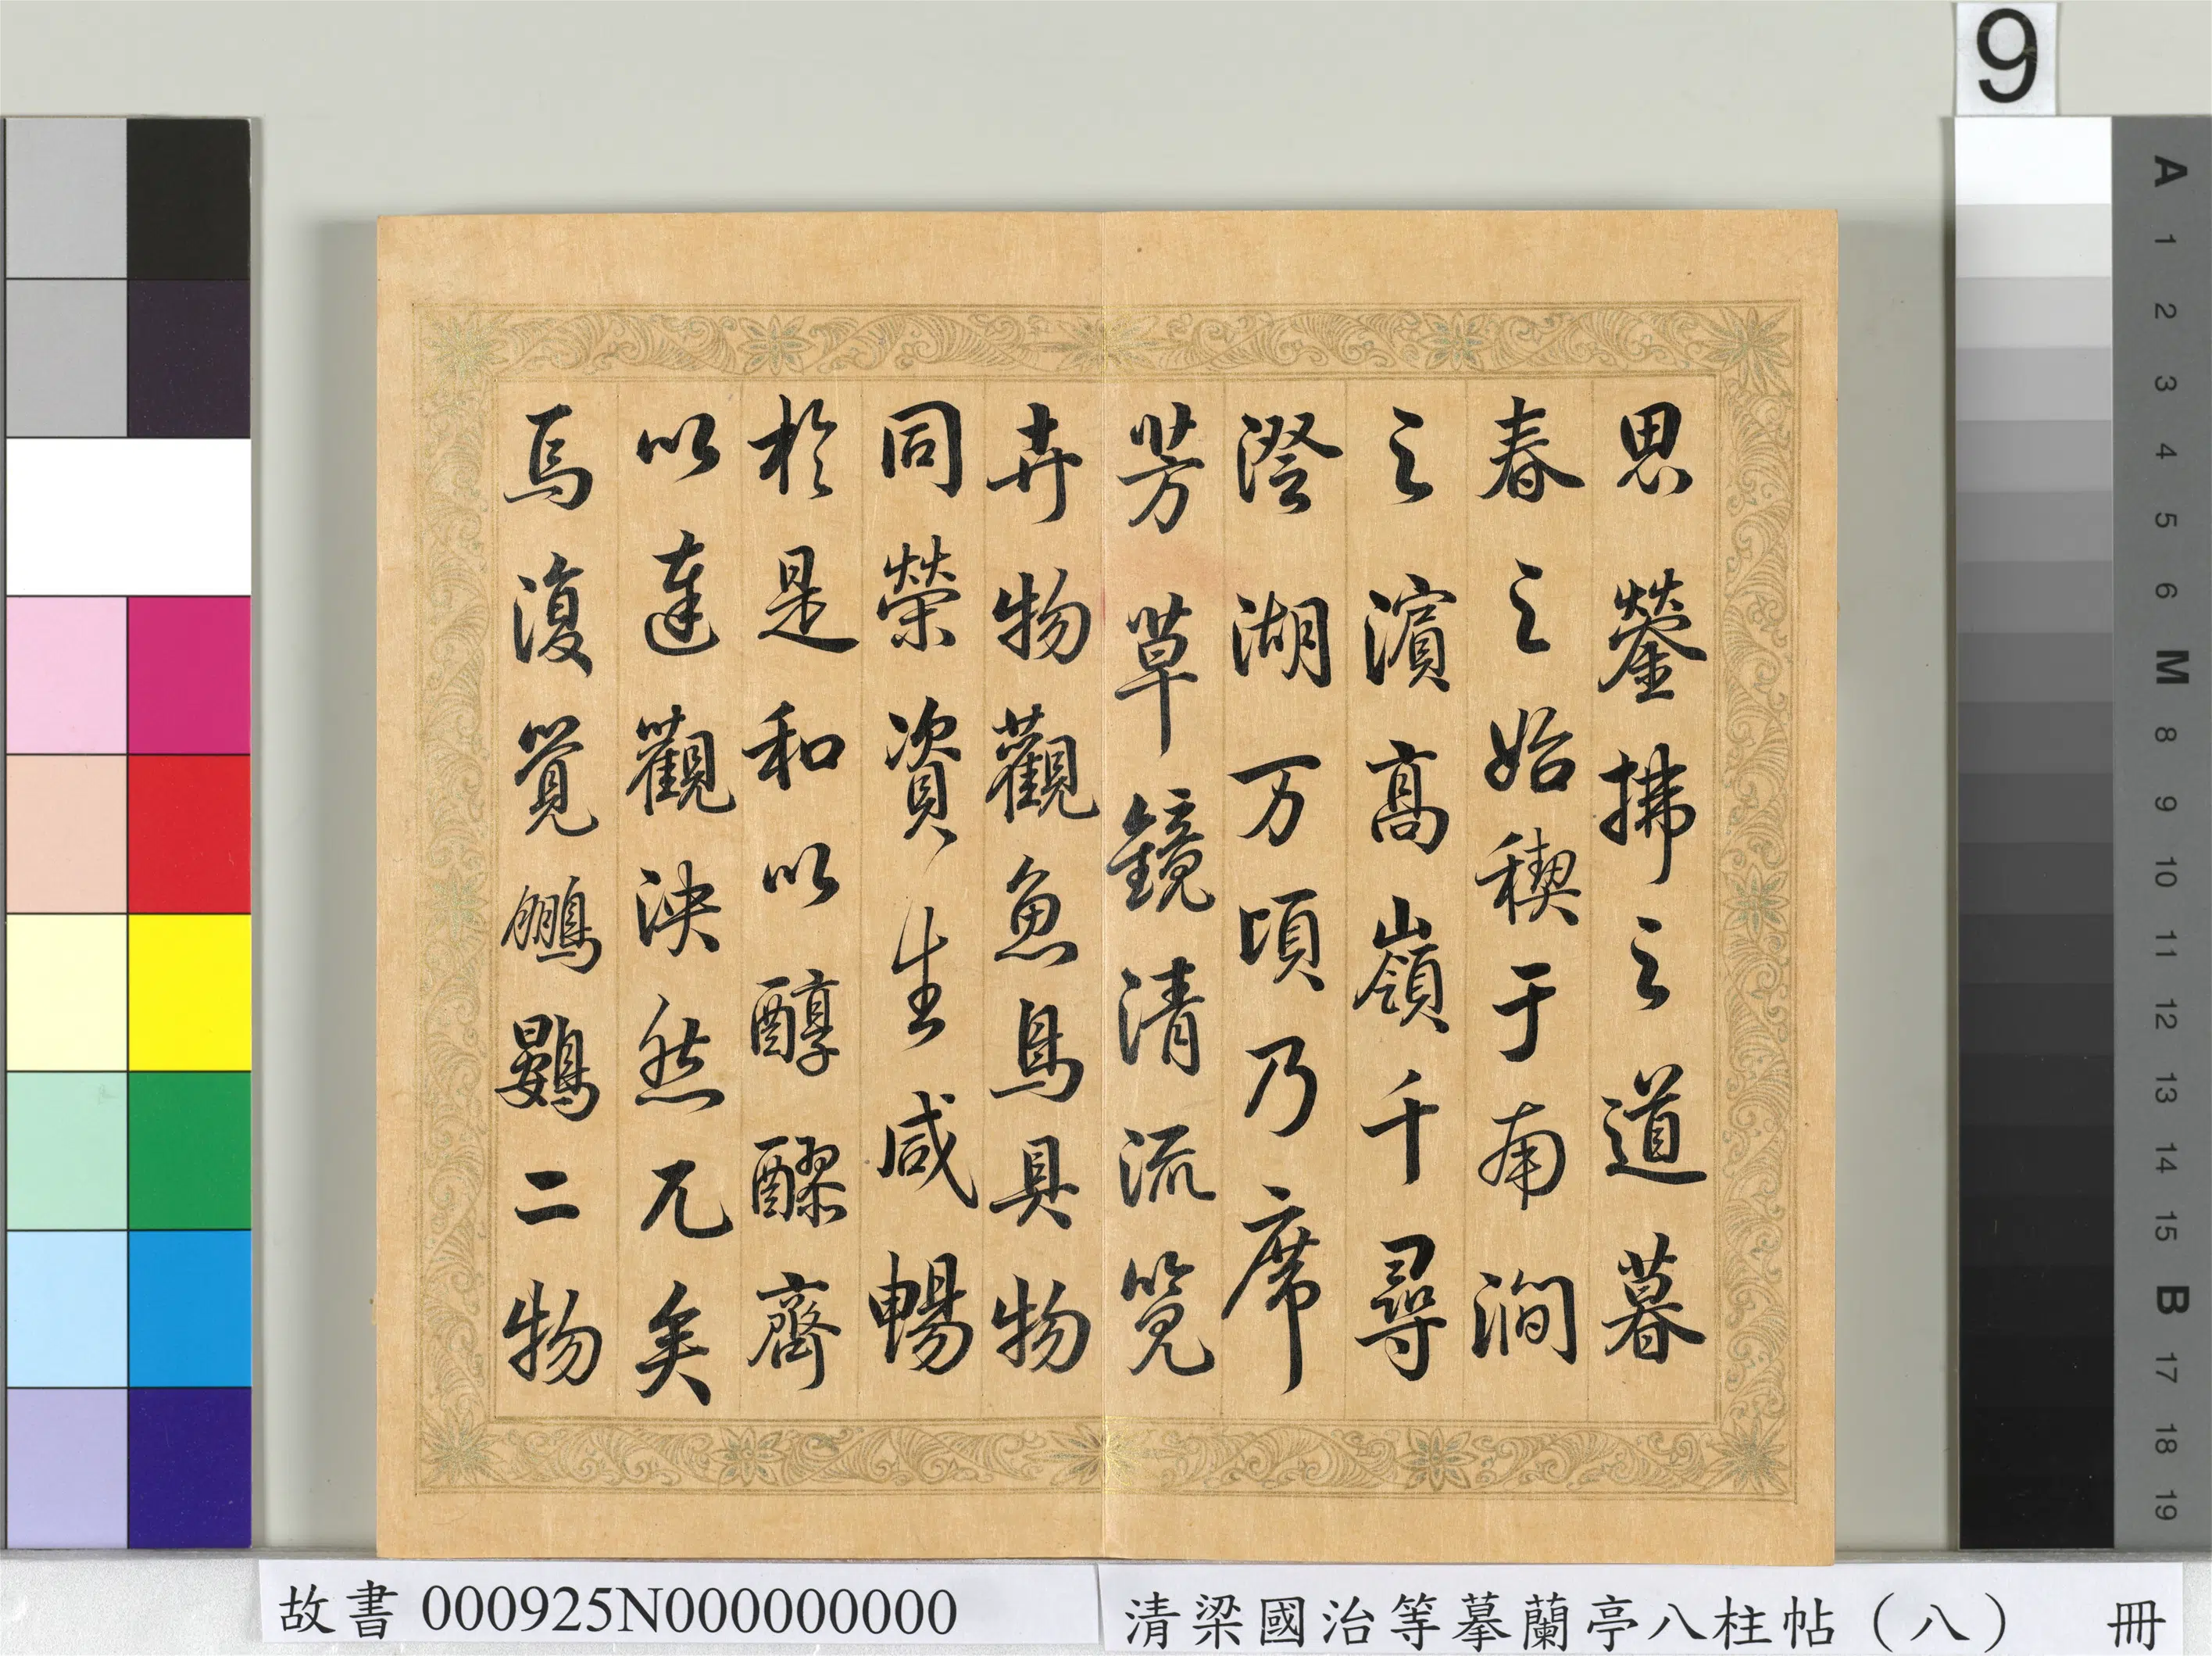 9
思瑩拂之道暮
春之始禊于南澗
之濱高嶺千尋
澄湖万頃乃席
芳草鏡清流覽
卉物觀魚鳥具物
同榮資生咸暢
於是和以醇醪齊
以達觀泱然兀矣
焉復覺鵬鷃二物
A 1 2 3 4 5 6 M 8 9 10 11 12 13 14 15 B 17 18 19
故書000925N000000000
清梁國治等摹蘭亭八柱帖（八） 冊